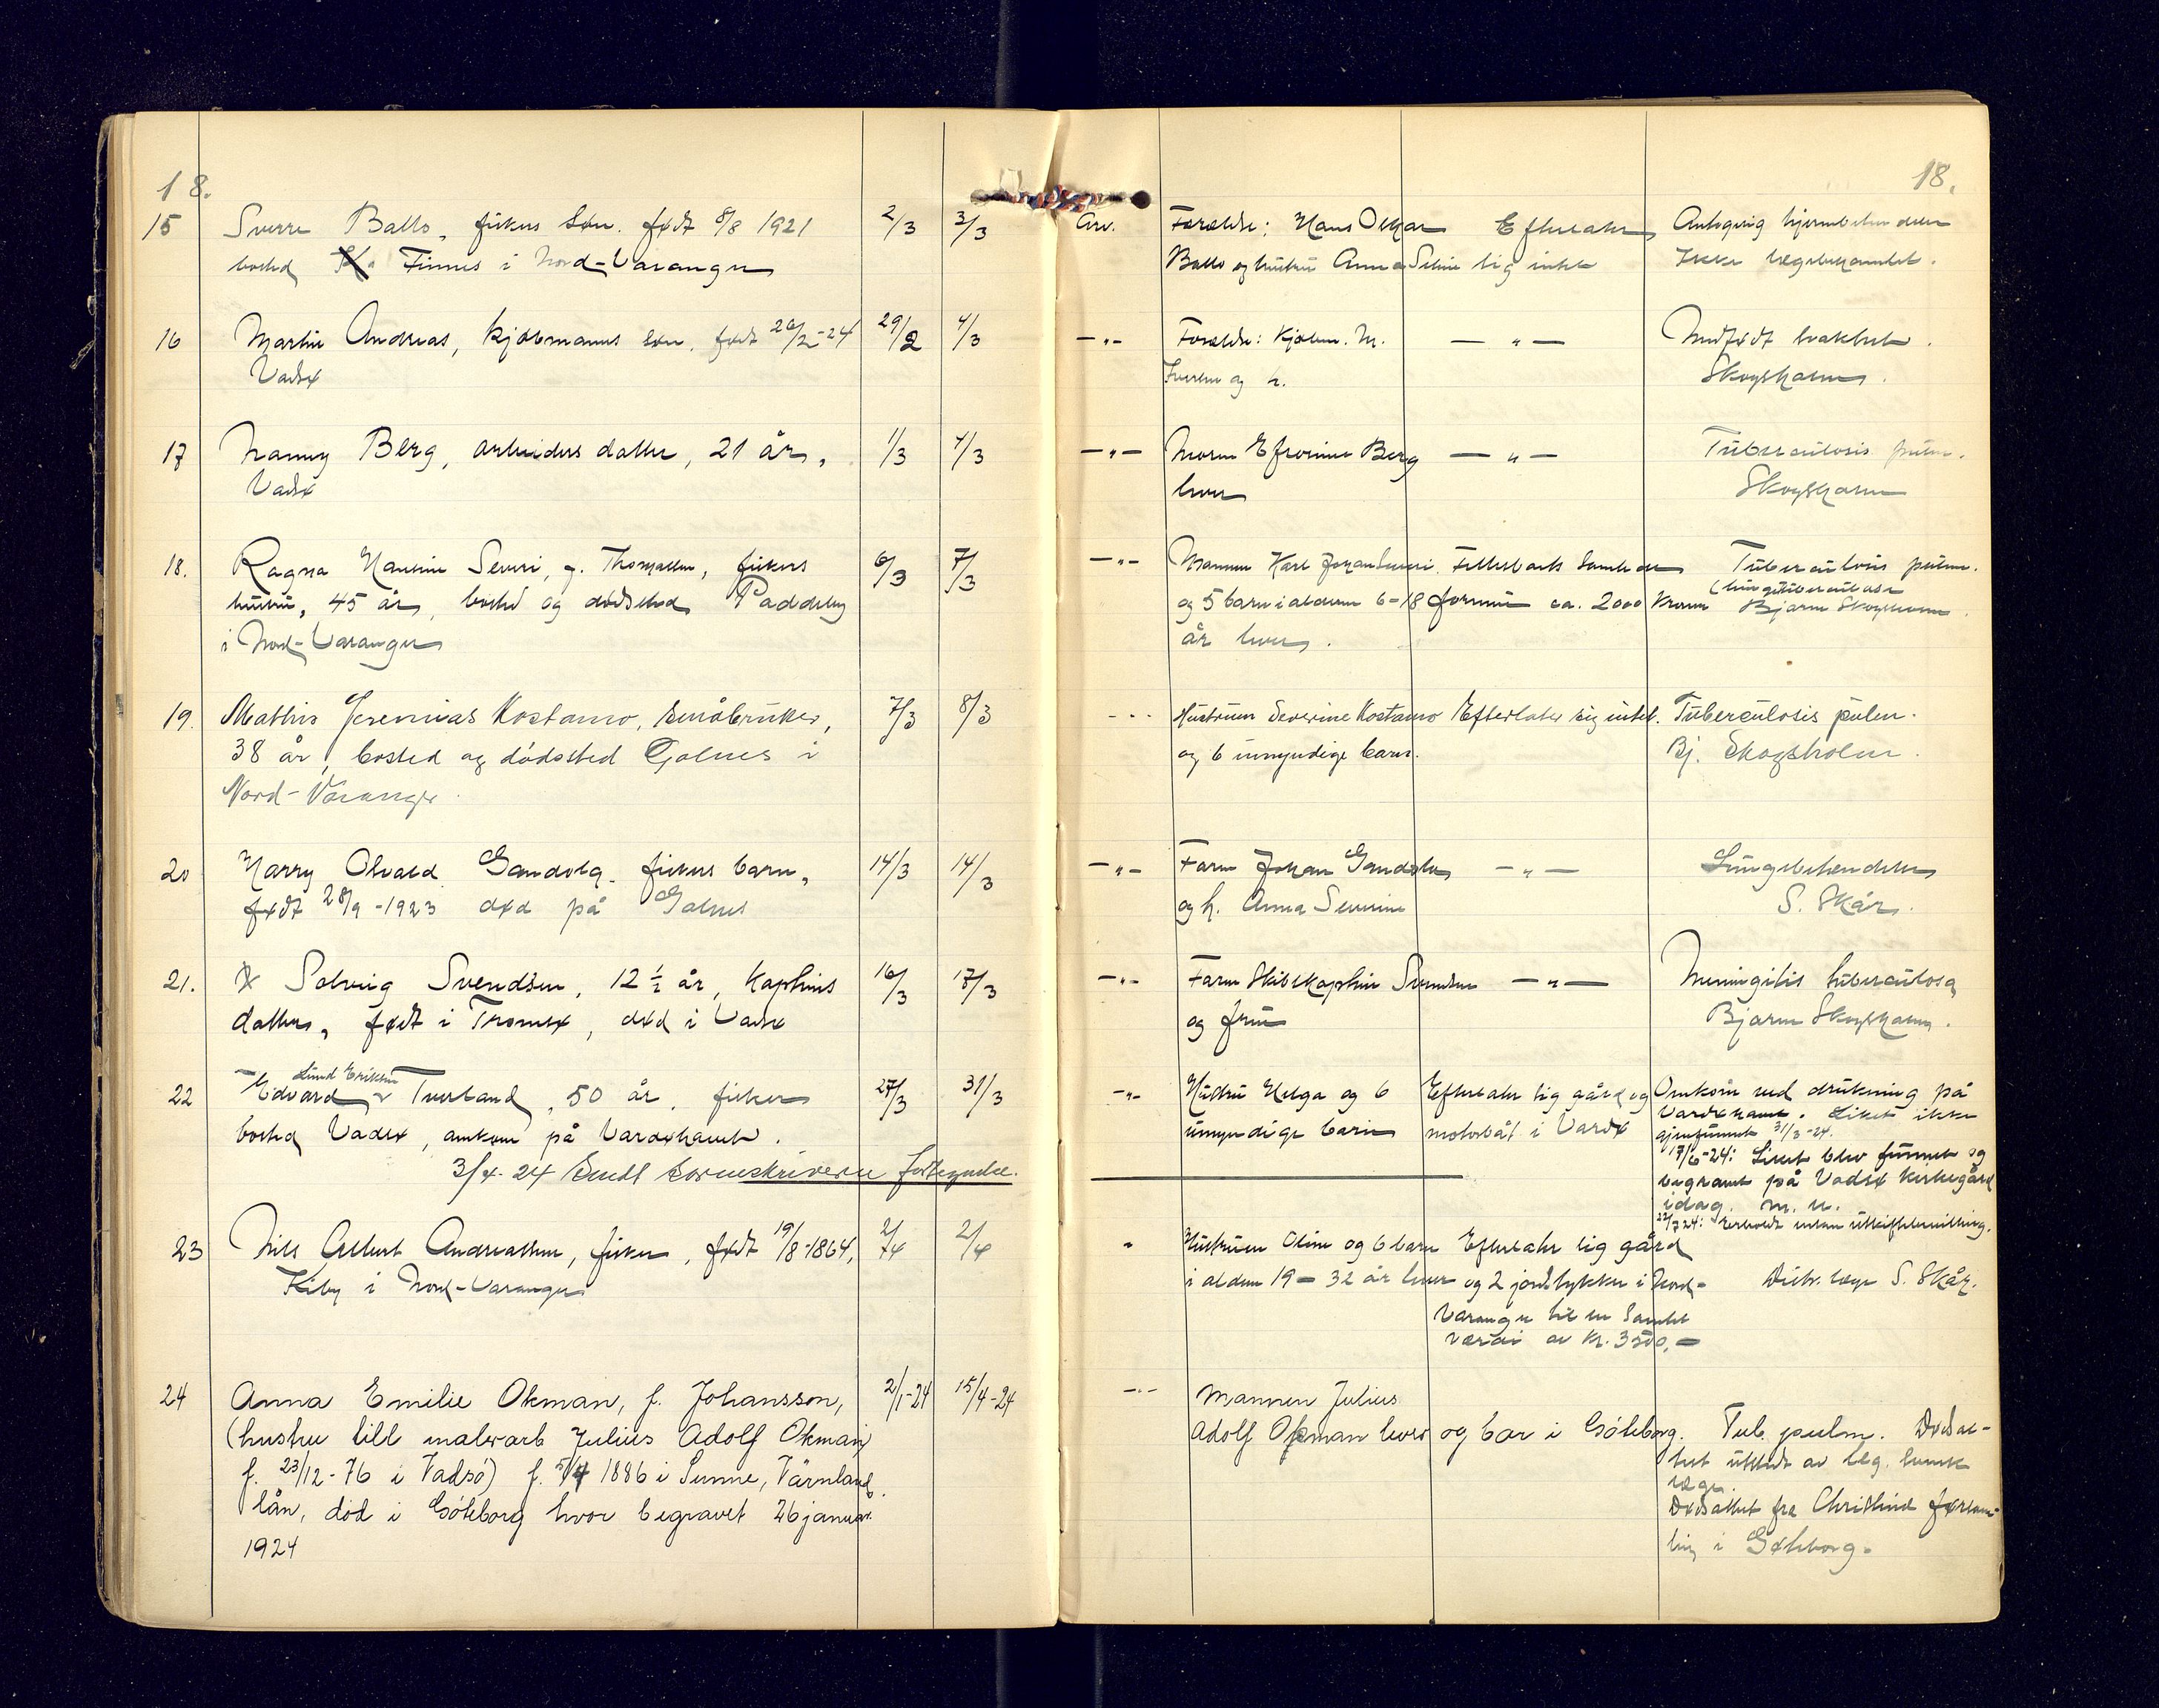 18.
15 Sverre Ballo, fiskers søn. født 8/8 1921 2/3 3/3
bosted Finnes i Nord-Varanger
16 Martin Andreas, kjøbmanns søn, født 26/2-24 29/2 4/3
Vadsø
17 Nanny Berg, arbeiders datter, 21 år, 1/3 4/3
Vadsø
18. Ragna Hansine Severi, f. Thomassen, fiskers 6/3 7/3
hustru, 45 år, bosted og dødssted Paddeby
i Nord-Varanger
19. Mathis Jeremias Kostamo, småbruker, 7/3 8/3
38 år, bosted og dødssted Golnes i
Nord-Varanger.
20 Harry Olvald Gandola. fiskers barn, 14/3 14/3
født 28/9-1923 død på Golnes
21. Solveig Svendsen, 12 1/2 år, kapteins 16/3 17/3
datter, født i Tromsø, død i Vadsø
Lund Eriksen
22 Edvard Tverland, 50 år, fisker 27/3 31/3
bosted Vadsø, omkom på Vardøhavet.
3/4-24 Sendt Sorenskriveren fortegnelse.
23 Nils Albert Andreassen, fisker, født 19/8-1864, 2/4 2/4
Kiby i Nord-Varanger
24 Anna Emilie Okman, f. Johansson, 2/1-24 15/4-24
(hustru till malerarb Julius Adolf Okman
f. 23/12-76 i Vadsö) f. 1886 i Sunne, Värmland.
län, död i Göteborg hvor begravet 26 januar.
1924
18.
Arv. Forældre: Hans Oskar Efterlater Antagelig hjernebetændelse
Ballo og hustru Anna Seline sig intet Ikke lægebehandlet.
—"— Forældre: Kjøbm. M. —"— Medfødt svakhet.
Iversen og h. Skogsholm.
—"— Moren Efrosine Berg —"— Tuberculosis pulm.
lever Skogsholm
—"— Mannen Karl Johan Severi Fellesboets samlede Tuberculosis pulm.
(lungetuberculose
og 5 barn i alderen 6-18 formue ca. 2000 kroner Bjarne Skogsholm.
år lever.
—"— Hustruen Severine Kostamo Efterlater sig intet. Tuberculosis pulm.
og 6 umyndige barn. Bj. Skogsholm.
—"— Faren Johan Gandola —"— Lungebetændelse
og h. Anna Severine S. Skår.
—"— Faren Skibskaptein Svendsen —"— Meningitis tuberculosa
og frue Bjarne Skogsholm.
—"— Hustru Helga og 6 Efterlater sig gård og Omkom ved drukning på
umyndige barn motorbåt i Vardø Vardøhavet. Liket ikke
gjenfunnet 31/3-24.
17/6-24: Liket blev funnet og
begravet på Vadsø kirkegård
idag. M. N.
22/7 24: uskiftebevilling.
" Hustruen Oline og 6 barn Efterlater sig gård
i alderen 19-32 år lever og 2 jordstykker i Nord- Distr. læge S. Skår.
Varanger til en samlet
verdi av kr. 3500,-
—"— Mannen Julius
Adolf Okman lever og bor i Göteborg. Tub. pulm. Dødsat-
test utstedt av leg. svensk
læge.
Dødsattest fra Christine forsam-
ling i Gøteborg.